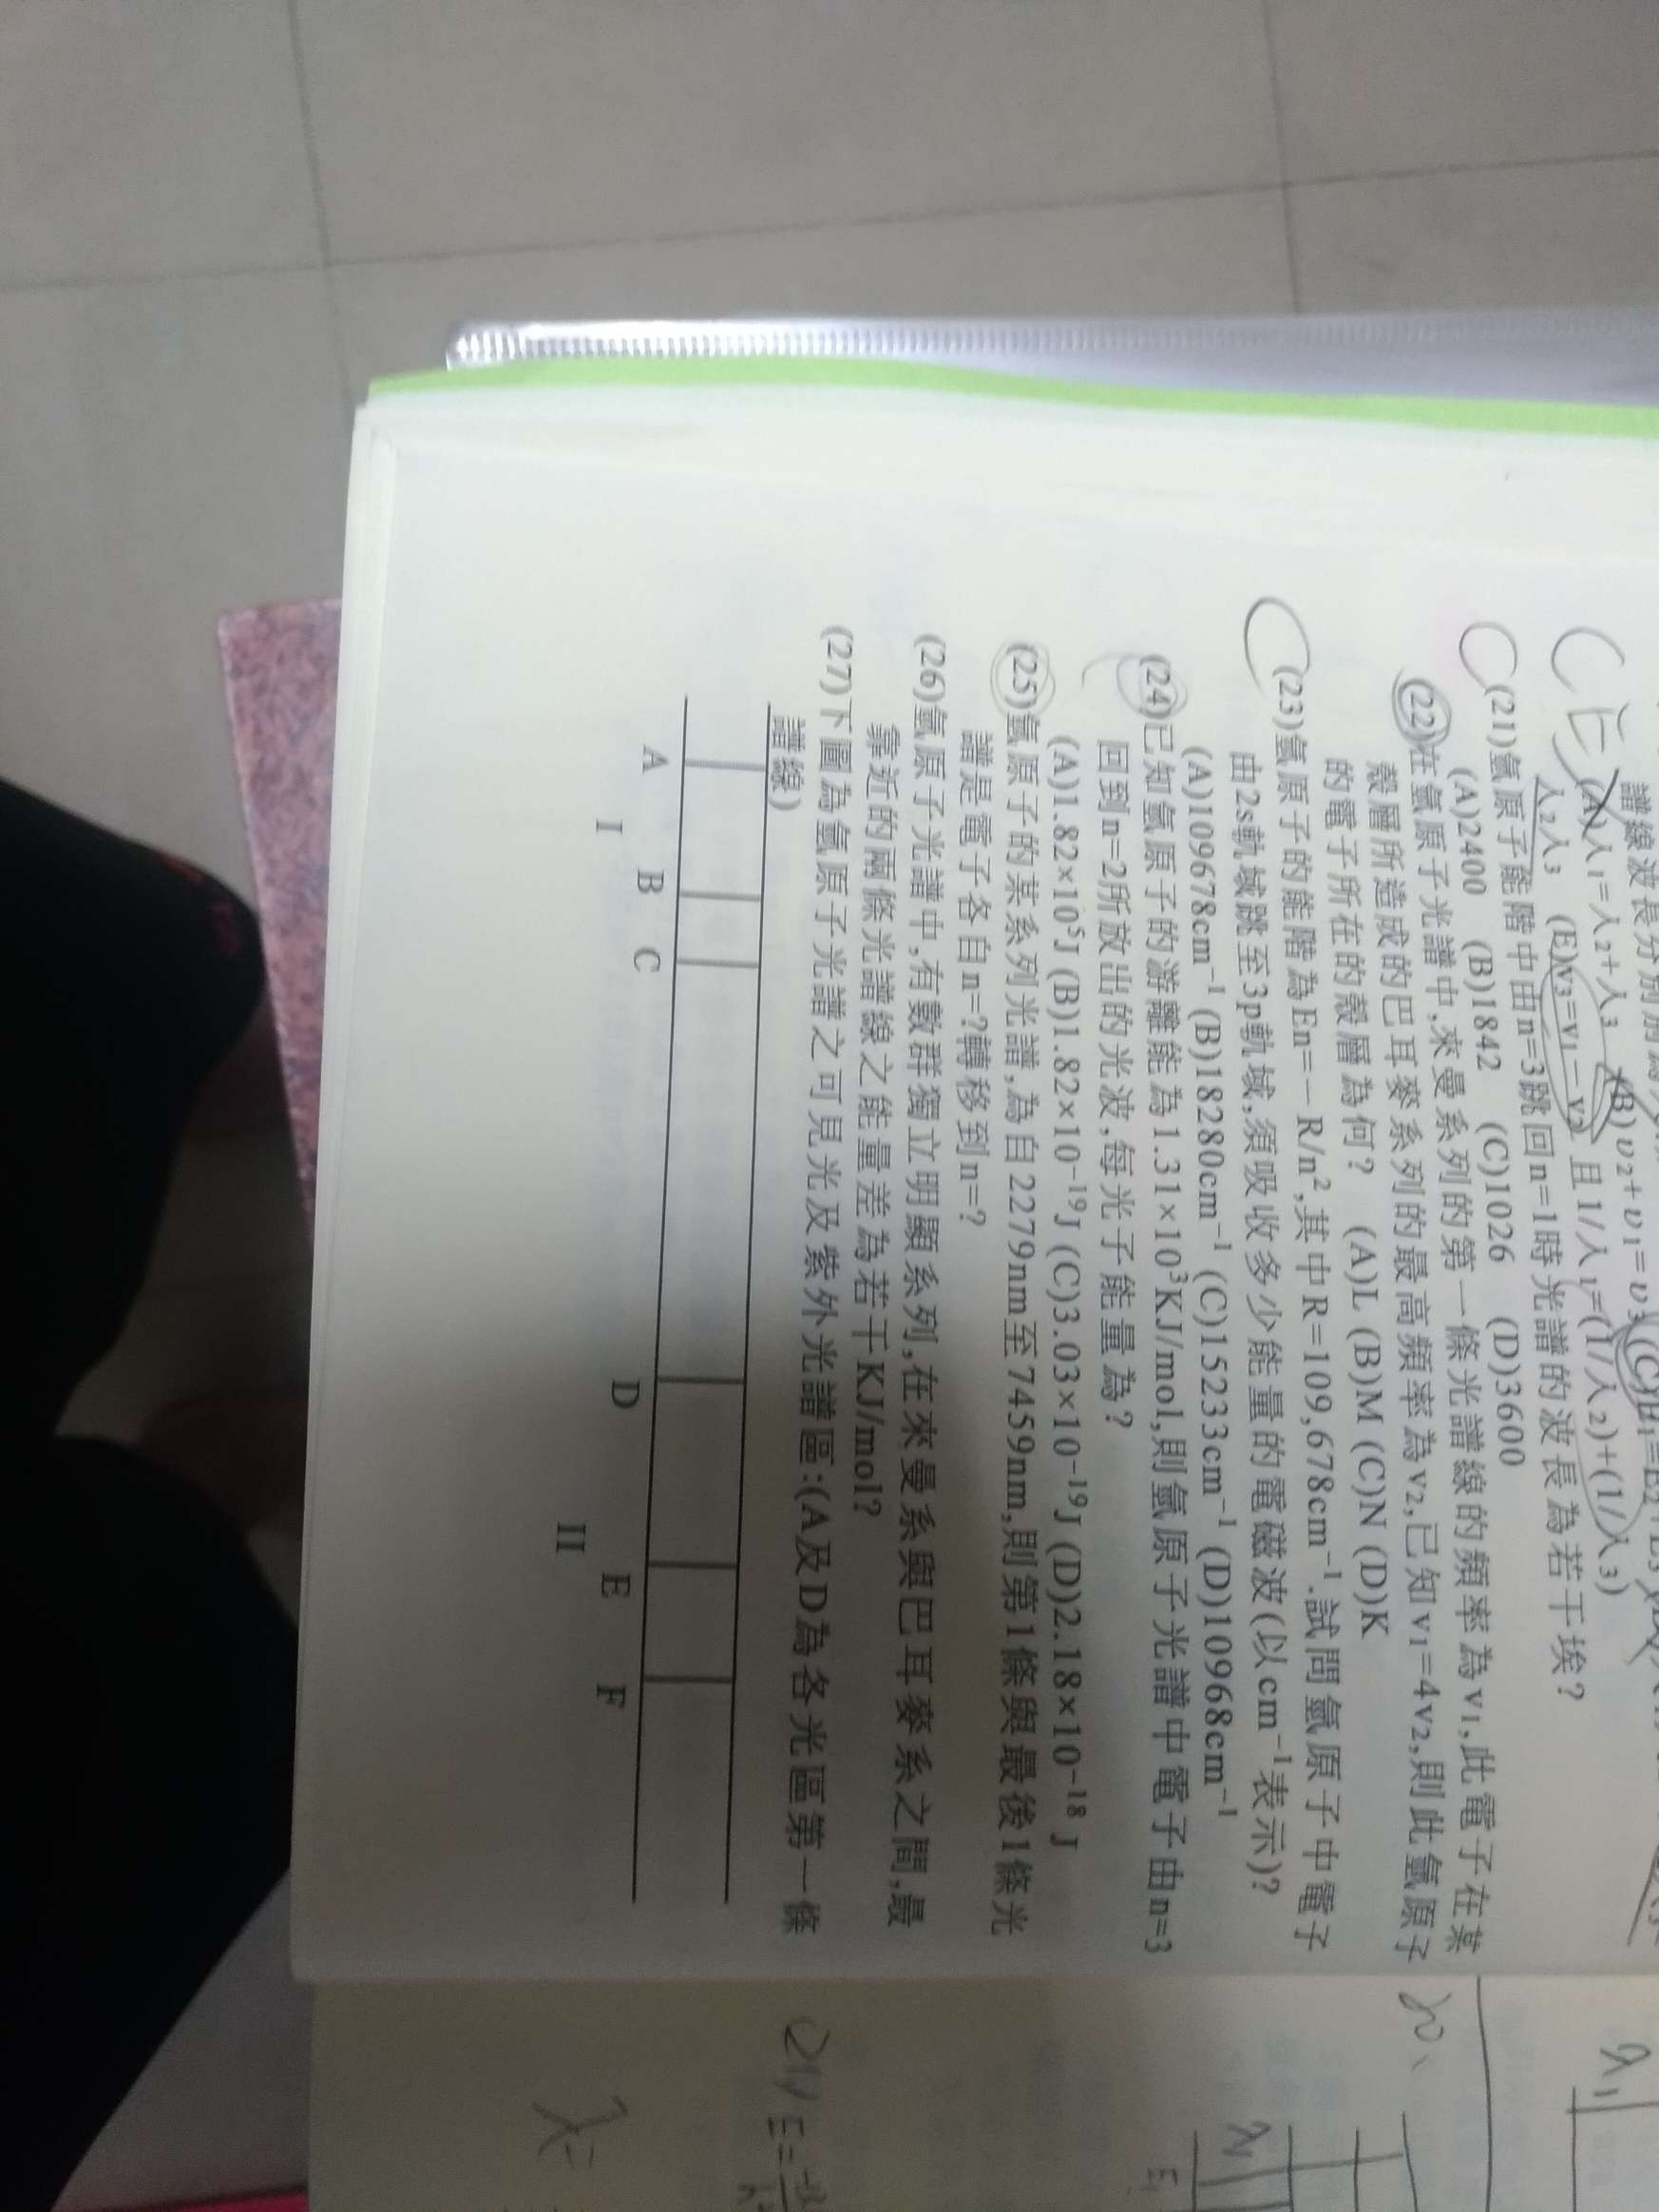 (A)λ1=λ2+λ3 (B)υ2+υ1=υ3
λ2λ3 (E)v3=v1-v2 且1/λ1=(1/λ2)+(1/λ3)
(21)氫原子能階中由n=3跳回n=1時光譜的波長為若干埃?
(A)2400 (B)1842 (C)1026 (D)3600
(22)在氫原子光譜中,來曼系列的第一條光譜線的頻率為v1,此電子在某
殼層所造成的巴耳麥系列的最高頻率為v2,已知v1=4v2,則此氫原子
的電子所在的殼層為何? (A)L (B)M (C)N (D)K
(23)氫原子的能階為En=-R/n²,其中R=109,678cm⁻¹.試問氫原子中電子
由2s軌域跳至3p軌域,須吸收多少能量的電磁波(以cm⁻¹表示)?
(A)109678cm⁻¹ (B)18280cm⁻¹ (C)15233cm⁻¹ (D)10968cm⁻¹
(24)已知氫原子的游離能為1.31×10³KJ/mol,則氫原子光譜中電子由n=3
回到n=2所放出的光波,每光子能量為?
(A)1.82×10⁵J (B)1.82×10⁻¹⁹J (C)3.03×10⁻¹⁹J (D)2.18×10⁻¹⁸J
(25)氫原子的某系列光譜,為自2279nm至7459nm,則第1條與最後1條光
譜是電子各自n=?轉移到n=?
(26)氫原子光譜中,有數群獨立明顯系列,在來曼系與巴耳麥系之間,最
靠近的兩條光譜線之能量差為若干KJ/mol?
(27)下圖為氫原子光譜之可見光及紫外光譜區:(A及D為各光區第一條
譜線)
A B C D E F
I II
λ1
λ1
21) E=
λ=